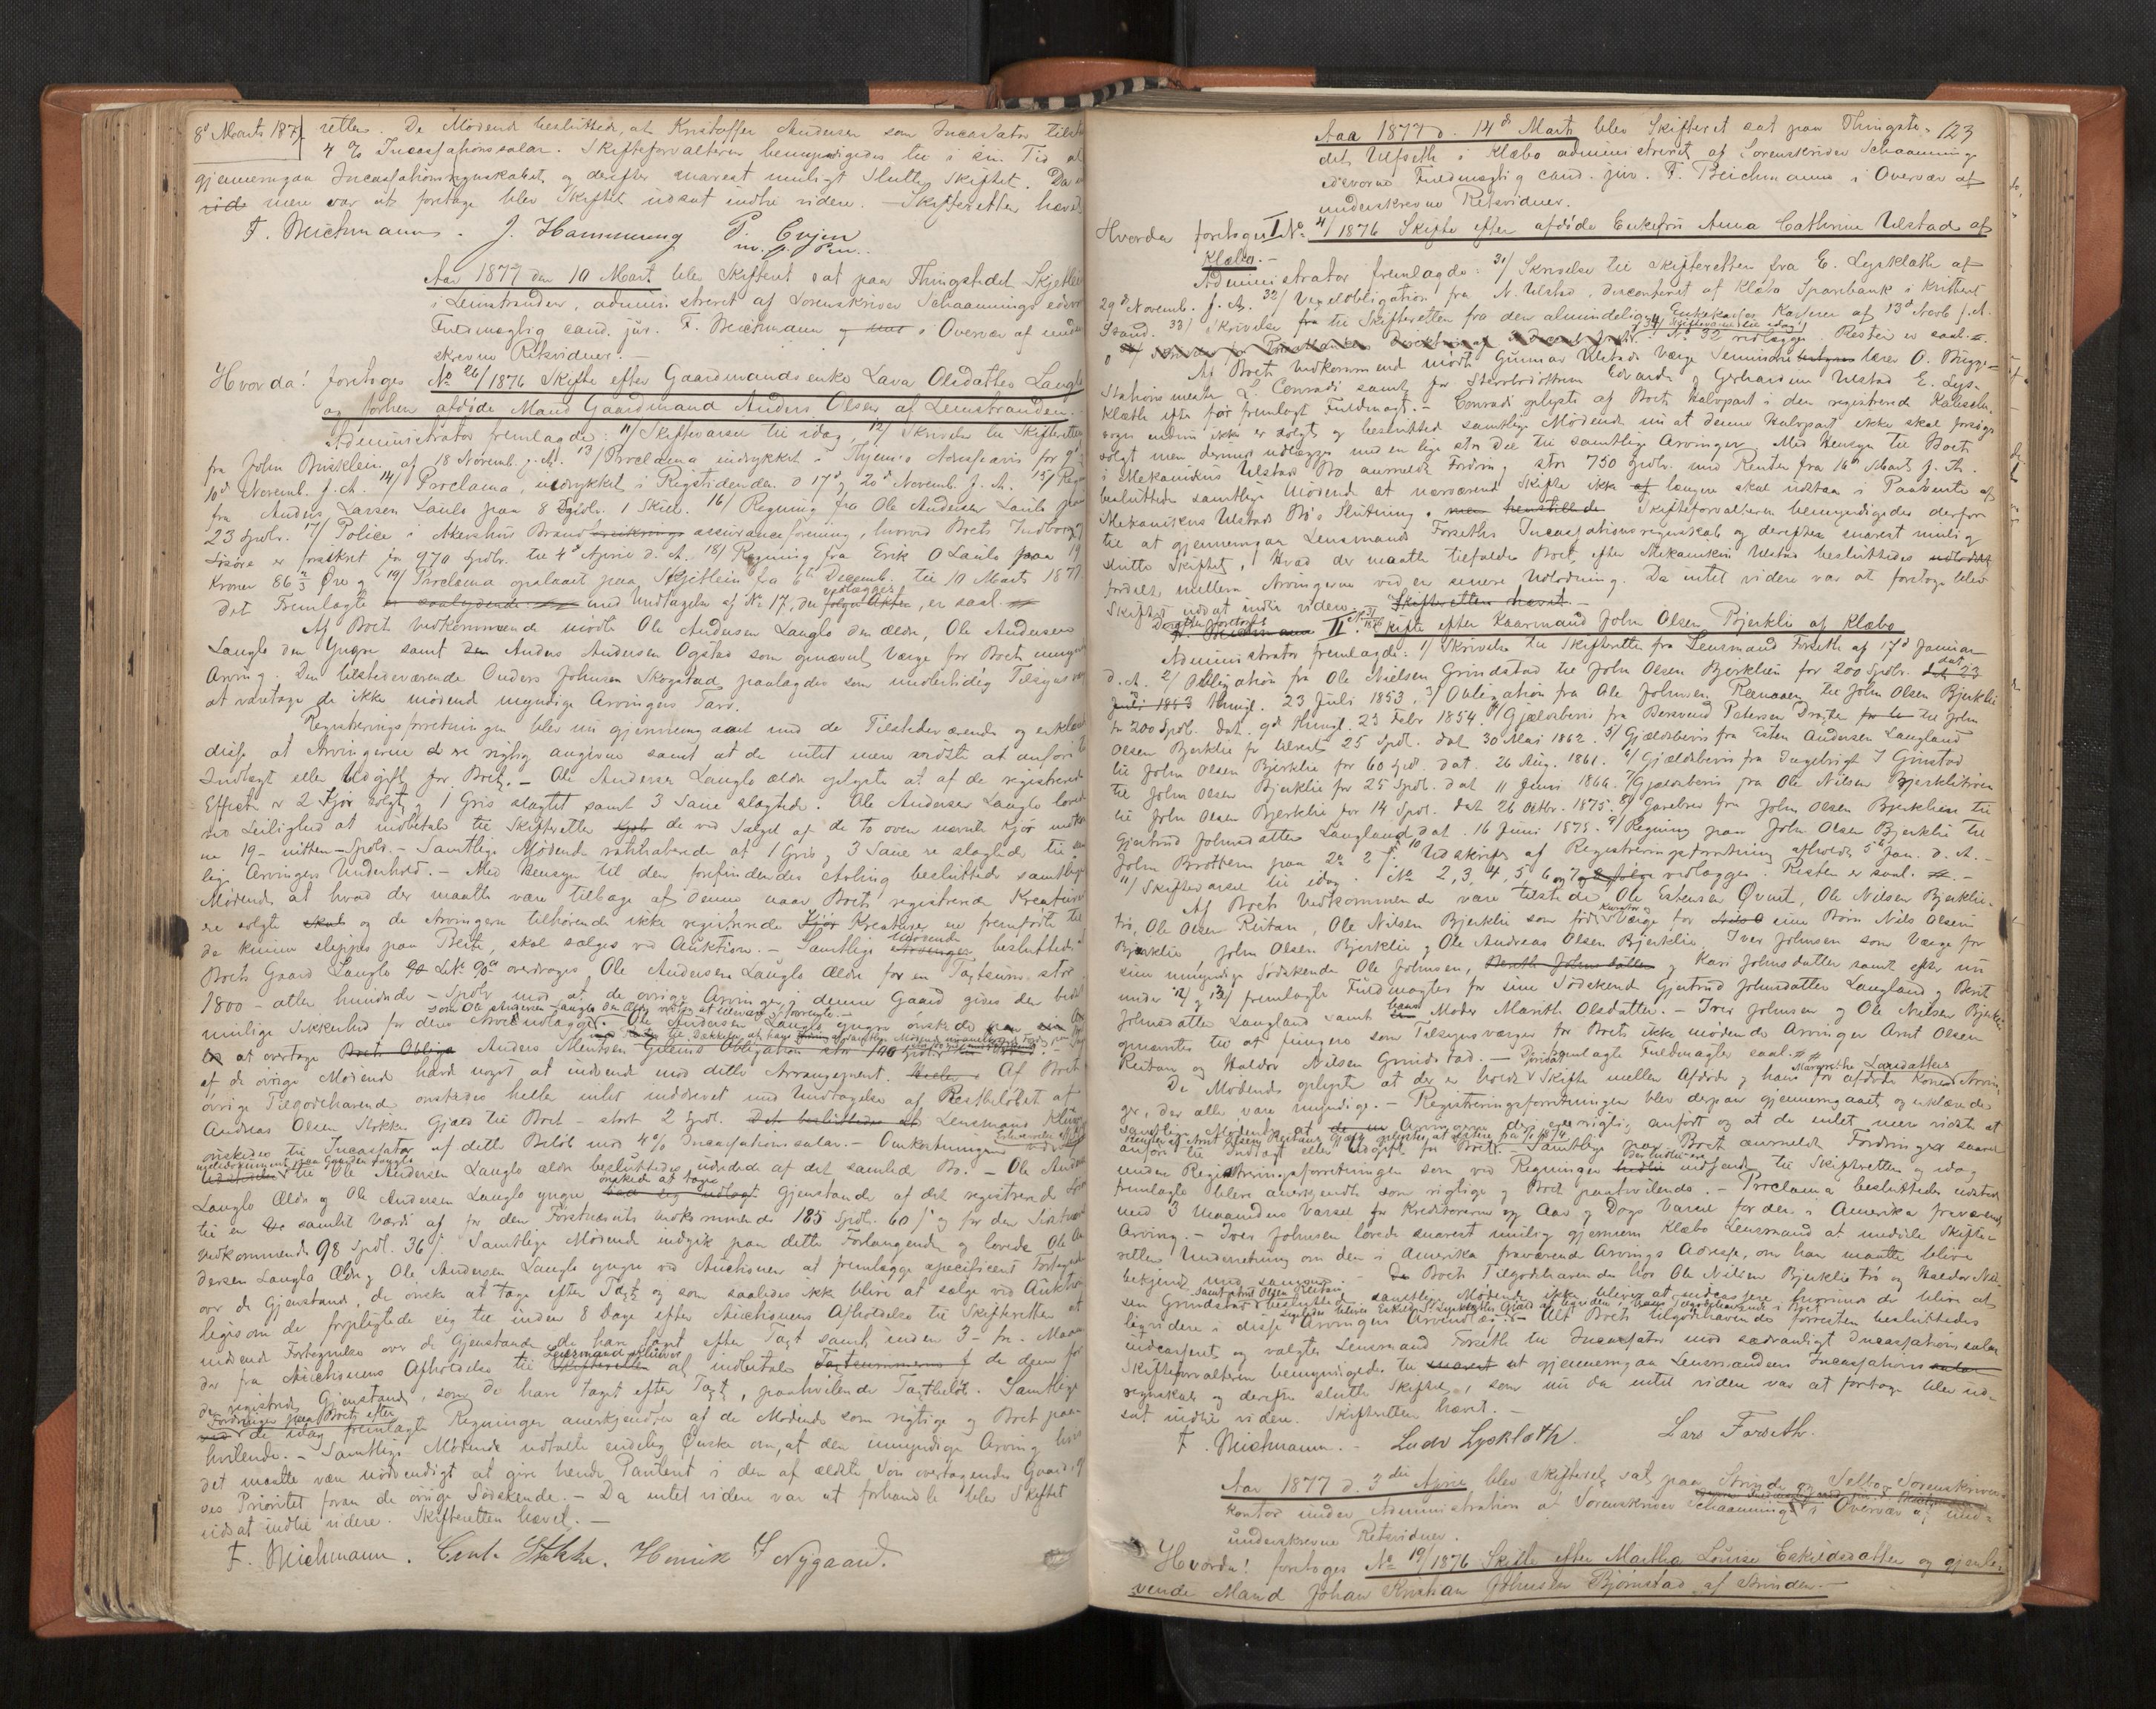 8d Marts 187
retten. De Mödende besluttede, at Kristoffer Andersen som Incassator
4 % Incassationssalær. Skifteforvalteren bemyndigedes til i sin Tid at
gjennemgaa Incassationsregnskabet og derefter snarest muligt slutte Skiftet. Da
mere var at foretage blev Skiftet udsat indtil videre. - Skifteretten hævet
F. Meichmann. J. Hammming P. Evjen
m. p. Pen.
Aar 1877 den 10 Mart. blev Skifteret sat paa Thingstedet Skjetlein
i Leinstranden, administreret af Sorenskriver Schaannings edsvorne
Fuldmægtig cand. jur. F. Meichmann og i Overvær af under
skrevne Retsvidner. -
Hvorda! foretoges No 26/1876 Skifte efter Gaardmandsenke Lava Olsdatter Langlo
og forhen afdöde Mand Gaardmand Anders Olsen af Leinstranden.
Administrator fremlagde: 11/ Skiftevarsel til idag, 12/ Skrivelse til Skifteretten
fra John Brusklein af 18 Novemb. f. A. 13/ Proclama indrykket i Thjems Adresseavis for 9d
10d Novemb. f. A. 14/ Proclama, indrykket i Rigstidenden d 17d og 20d Novemb. f. A. 15/
fra Anders Larsen Laulo paa 8 Spdlr. 1 Skill. 16/ Regning fra Ole Andersen Laulo paa
23 Spdlr. 17/ Police i Akershus Brand assuranceforening, hvorved Boets Indbo og
Lösöre er forsikret for 970 Spdlr. til 4d April d. A. 18/ Regning fra Erik O Laulo paa 19
Kroner 86 2/3 Öre og 19/ Proclama opslaaet paa Skjetlein fra 6te Decemb. til 10 Marts 1877.
Det Fremlagte med Undtagelse af No 17, der vedlægges, er saal.
Af Boets Vedkommende mödte Ole Andersen Langlo den ældre, Ole Andersen
Langlo den Yngre samt Anders Andersen Ogstad som opnævnt Værge for Boets umyndige
Arving. Den tilstedeværende Anders Johnsen Skogstad paalagdes som midlertidig Tilsyns
at varetage de ikke mödende myndige Arvingers Tarv.
Registreringsforretningen blev nu gjennemgaaet med de Tilstedeværende og erklærede
disse at Arvingerne ere rigtig angivne samt at de intet mere vidste at anföre
Indtægt eller Udgift for Boet. - Ole Andersen Langlo ældre oplyste at af de registrerede
Effecter er 2 Kjör solgt, 1 Gris slagtet samt 3 Saue slagtede. Ole Andersen Langlo lovede
ved Leilighed at indbetale til Skifteretten de ved Salget af de to oven nævnte Kjör
ne 19 - nitten - Spdlr. - Samtlige Mödende ratihaberede at 1 Gris, 3 Saue er slagtede til
lige Arvingers Underhold. - Med Hensyn til den forefindendes Avling besluttede samtlige
Mödende at hvad der maatte være tilbage af denne naar Boets registrerede Kreature
ere solgte og de Arvingerne tilhörende ikke registrerede Kreature ere fremfödte til
de kunne slippes paa Beite, skal sælges ved Auktion. - Samtlige Mödende besluttede
Boets Gaard Langlo LNo 90a overdrages Ole Andersen Langlo Ældre for en Taxtsum stor
1800 - atten hundrede - Spdlr mod at de övrige Arvinger i denne Gaard gives den bedst
mulige Sikkerhed for deres Arveudlæg. Ole Andersen Langlo yngre önskede
at overtage Anders Mentsen Obligation stor 100 Spdlr.
af de övrige Mödende havde noget at indvende mod dette Arrangement. Af Boet
övrige Tilgodehavende önskedes heller intet inddrevet med Undtagelse af Restbelöbet af
Andreas Olsen Stokkes Gjæld til Boet - stort 2 Spdl. Lensmand Klüver
önskedes til Incassator af dette Belöb mod 4 % Incassationssalær. - Omkostningerne ved
til Ole Andersen Langlo ældre besluttedes udredede af det samlede Bo. - Ole Andersen
Langlo Ældre og Ole Andersen Langlo yngre önskede at tage Gjenstande af det registrerede
til en samlet Værdi af for den Förstnævntes Vedkommende 185 Spdl. 60 s og for den Sidstnævntes
Vedkommende 98 Spdl. 36 s. Samtlige Mödende indgik paa dette Forlangende og lovede Ole An
dersen Langlo Ældre og Ole Andersen Langlo yngre ved Auctionen at fremlægge specificeret Fortegnelse
over de Gjenstande, de önske at tage efter Taxt og som saaledes ikke blive at sælge ved Auktion
ligesom de forpligtede sig til inden 8 Dage efter Auctionens Afholdelse til Skifteretten at
indsende Fortegnelse over de Gjenstande de have taget efter Taxt samt inden 3 - tre - Maane
der fra Auctionens Afholdelse til Lensmand Klüver at indbetale de dem for
de registrerede Gjenstande, som de have taget efter Taxt, paahvilende Taxtbelöb. Samtlige
Fordringer paa Boet efter de idag fremlagte Regninger anerkjendtes af de Mödende som rigtige og Boet paa-
hvilende. - Samtlige Mödende udtalte endelig Önske om, at den umyndige Arving hvis
det maatte være nödvendigt at give hende Panteret i den af ældste Sön overtagendes Gaard, gi
ves Prioritet foran de övrige Södskende. - Da intet videre var at forhandle blev Skiftet
udsat indtil videre. Skifteretten hævet. -
F. Meichmann. Henrik Nygaard.
123
Aar 1877 d. 14d Marts blev Skifteret sat paa Thingste-
det Ulfseth i Klæbo administreret af Sorenskriver Schaannings
edsvorne Fuldmægtig cand. jur. F. Meichmann i Overvær af
underskrevne Retsvidner.
Hvorda foretoges I No 4/1876 Skifte efter afdöde Enkefru Anna Cathrine Ulstad af
Klæbo. -
Administrator fremlagde: 31/ Skrivelse til Skifteretten fra E. Lysklæth af
29d Novemb. f. A. 32/ Vexelobligation fra N. Ulstad, disconteret af Klæbo Sparebank i Kvitteret
Stand. 33/ Skrivelse til Skifteretten fra den almindelige Enkekasses Kasserer af 13d Novb f. A.
No 32 vedlægges. Resten er saal.
Af Boets Vedkommende mödte Gunnar Ulstads Værge Seminarielærer O. Bugge
Stationsmester L. Conradi samt for Stervbodöttrene Edvarda og Gerhardine Ulstad E. Lys-
klæth efter för fremlagt Fuldmagt. - Conradi oplyste at Boets Halvpart i den registrerede Kalesche-
vogn endnu ikke er solgt, og besluttede samtlige Mödende nu at denne Halvpart ikke skal forsöges
solgt men derimod udlægges med en lige stor Deel til samtlige Arvinger. Med Hensyn til Boets
i Mekanikus Ulstads Bo anmeldte Fordring stor 750 Spdlr. med Renter fra 16d Marts f. A.
besluttede samtlige Mödende at nærværende Skifte ikke længere skal udstaa i Paavente af
Mekanikus Ulstads Bo's Slutning. Skifteforvalteren bemyndigedes derfor
til at gjennemgaa Lensmand Forseths Incassationsregnskab og derefter snarest mulig
slutte Skiftet. Hvad der maatte tilfalde Boet efter Mekanikus Ulstad besluttedes
fordelt mellem Arvingerne ved en senere Udlodning. Da intet videre var at foretage blev
Skiftet udsat indtil videre. Skifteretten hævet. -
Derefter foretoges II. No 31/1876 Skifte efter Kaarmand John Olsen Bjerklie af Klæbo
Administrator fremlagde: 1/ Skrivelse til Skifteretten fra Lensmand Forseth af 17d Januar
d. A. 2/ Obligation fra Ole Nielsen Grindstad til John Olsen Bjerklien for 200 Spdlr. dat 23
Juli 1853 thingl. 23 Juli 1853. 3/ Obligation fra Ole Johnsen Rønaasen til John Olsen Bjerklie
for 200 Spdl. dat. 9d thingl. 23 Febr 1854. 4/ Gjældsbevis fra Bersvend Petersen Dragte til John
Olsen Bjerklie for tilrest 25 Spdl. dat 30 Mai 1862. 5/ Gjældsbevis fra Esten Andersen Langland
til John Olsen Bjerklie for 60 Spdl. dat. 26 Aug. 1861. 6/ Gjældsbevis fra Ingebrigt I Grinstad
til John Olsen Bjerklie for 25 Spdl. dat 11 Juni 1866. 7/ Gjældsbevis fra Ole Nilsen Bjerklitröen
til John Olsen Bjerklie for 14 Spdl. dat 26 Octbr. 1875. 8/ Gavebrev fra John Olsen Bjerklien til
Gjertrud Johnsdatter Langland dat. 16 Juni 1875. 9/ Regning paa John Olsen Bjerklie til
John Brøttem paa 2 2 s. 10 Udskrift af Registreringsforretning afholdt 5te Jan. d. A. -
11/ Skiftevarsel til idag. No 2, 3, 4, 5, 6 og 7 vedlægges. Resten er saal. -
Af Boets Vedkommende vare tilstede Ole Estensen Qvinset, Ole Nilsen Bjerklie-
trö, Ole Olsen Reitan, Ole Nilsen Bjerklie som födt Værge for sine Börn Nils Olsen
Bjerklie, John Olsen Bjerklie og Ole Andreas Olsen Bjerklie. Iver Johnsen som Værge for
sine umyndige Södskende Ole Johnsen, Berith Johnsdatter og Kari Johnsdatter samt efter nu
under 12/ og 13/ fremlagte Fuldmagter for sine Södskende Gjertrud Johnsdatter Langland og Berit
Johnsdatter Langland samt hans Moder Marith Olsdatter. - Iver Johnsen og Ole Nilsen Bjerklie
opnævntes til at fungere som Tilsynsværger for Boets ikke mödende Arvinger Arnt Olsen
Reitan og Haldor Nilsen Grindstad. - De fremlagte Fuldmagter saal.
De Mödende oplyste at der er holdt Skifte mellem Afdöde og hans för afdöde Kones Margrethe Larsdatters Arvin-
ger, der alle vare myndige. - Registreringsforretningen blev derpaa gjennemgaaet og erklærede
samtlige Mödende at Arvingerne der ere rigtig anfört og at de intet mere vidste at
anföre til Indtægt eller Udgift for Boet. - Samtlige paa Boet anmeldte Fordringer saavel
under Registreringsforretningen som ved Regninger indsendte til Skifteretten og idag
fremlagte bleve anerkjendte som rigtige og Boet paahvilende. - Proclama besluttedes udstedt
med 3 Maaneders Varsel for Kreditorerne og Aar og Dags Varsel for den i Amerika fraværende
Arving. - Iver Johnsen lovede snarest mulig gjennem Klæbo Lensmand at meddele Skifte-
retten Underretning om den i Amerika fraværende Arvings Adresse, om han maatte blive
bekjendt med samme. - Boets Tilgodehavender hos Ole Nilsen Bjerklie trö og Haldor Niel-
sen Grindstad samt Arnt Olsen Reitan besluttede samtlige Mödende ikke bliver at indcassere, hvorimod de blive at
ligvidere i disse Arvingers Arveudlæg. - Alt Boets tilgodehavende forresten besluttedes
indcasseret og valgtes Lensmand Forseth til Incassator mod sædvanligt Incassationssalær
Skifteforvalteren bemyndigedes til at gjennemgaa Lensmandens Incassations
regnskab og derefter slutte Skiftet, som nu da intet videre var at foretage blev ud-
sat indtil videre. Skifteretten hævet. -
F. Meichmann. - Ludv Lysklæth. Lars Forseth.
Aar 1877 d. 3die April blev Skifteret sat paa Strinde og Selbo Sorenskriver-
kontor under Administration af Sorenskriver Schaanning i Overvær af und-
underskrevne Retsvidner.
Hvorda! foretoges No 19/1876 Skifte efter Martha Louise Eskildsdatter og gjenle-
vende Mand Johan Kristian Johnsen Bjørnstad af Strinden. -